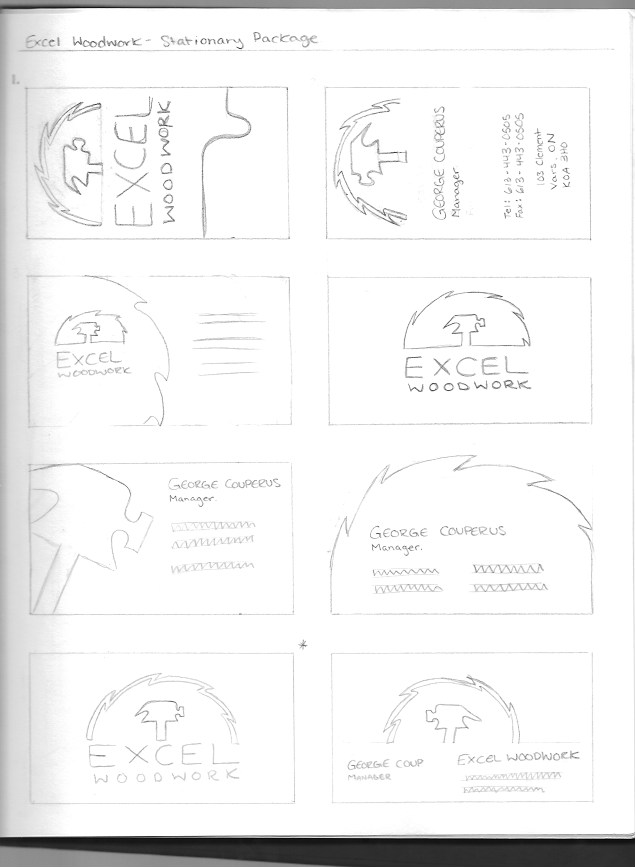 Excel Woodwork - Stationary Package
1.
EXCEL
WOODWORK
GEORGE COUPERUS
Manager
Tel: 613-443-0505
Fax: 613-443-0505
103 Clement
Vars, ON
K0A 3H0
EXCEL
WOODWORK
EXCEL
WOODWORK
GEORGE COUPERUS
Manager.
GEORGE COUPERUS
Manager.
*
EXCEL
WOODWORK
GEORGE COUP
MANAGER
EXCEL WOODWORK